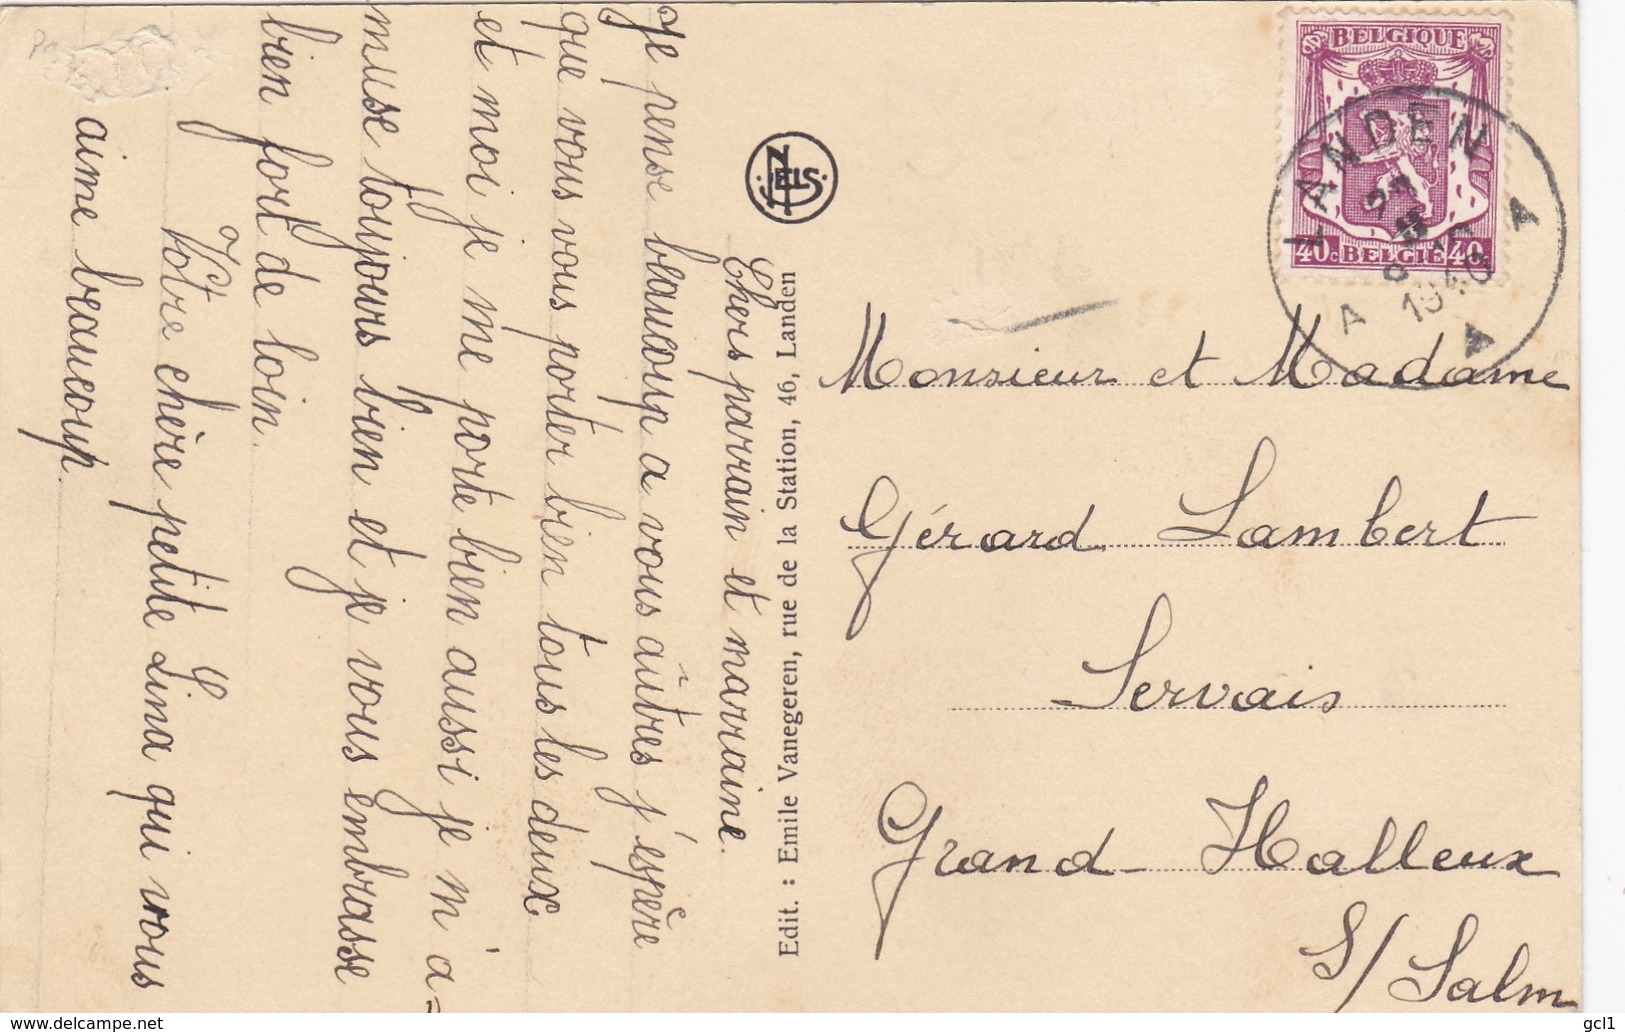 Chers parrain et marraine.
Je pense beaucoup a vous aûtres j'espère
que vous vous porter bien tous les deux
et moi je me porte bien aussi je m'a-
muse toujours bien et je vous embrasse
bien fort de loin.
Votre chère petite Lina qui vous
aime beaucoup.
NELS
Edit. : Emile Vanegeren, rue de la Station, 46, Landen
BELGIQUE
40c BELGIË 40c
LANDEN
1940
A A
Monsieur et Madame
Gérard Lambert
Servais
Grand-Halleux
S/Salm
gcl1
delcampe.net